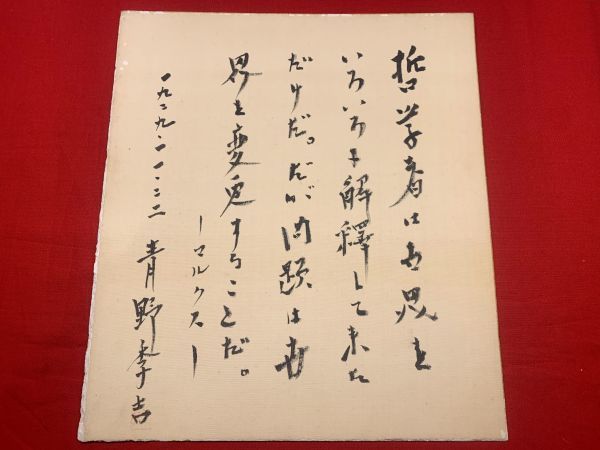 哲学者は世界を
いろいろに解釋して来た
だけだ。だが、問題は世
界を変更することだ。
―マルクス―
一九二九・一一・二二 青野季吉